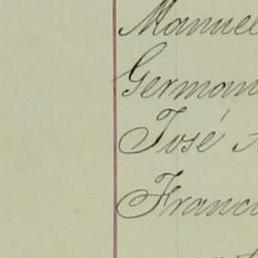 Manuel
German
José
Franci